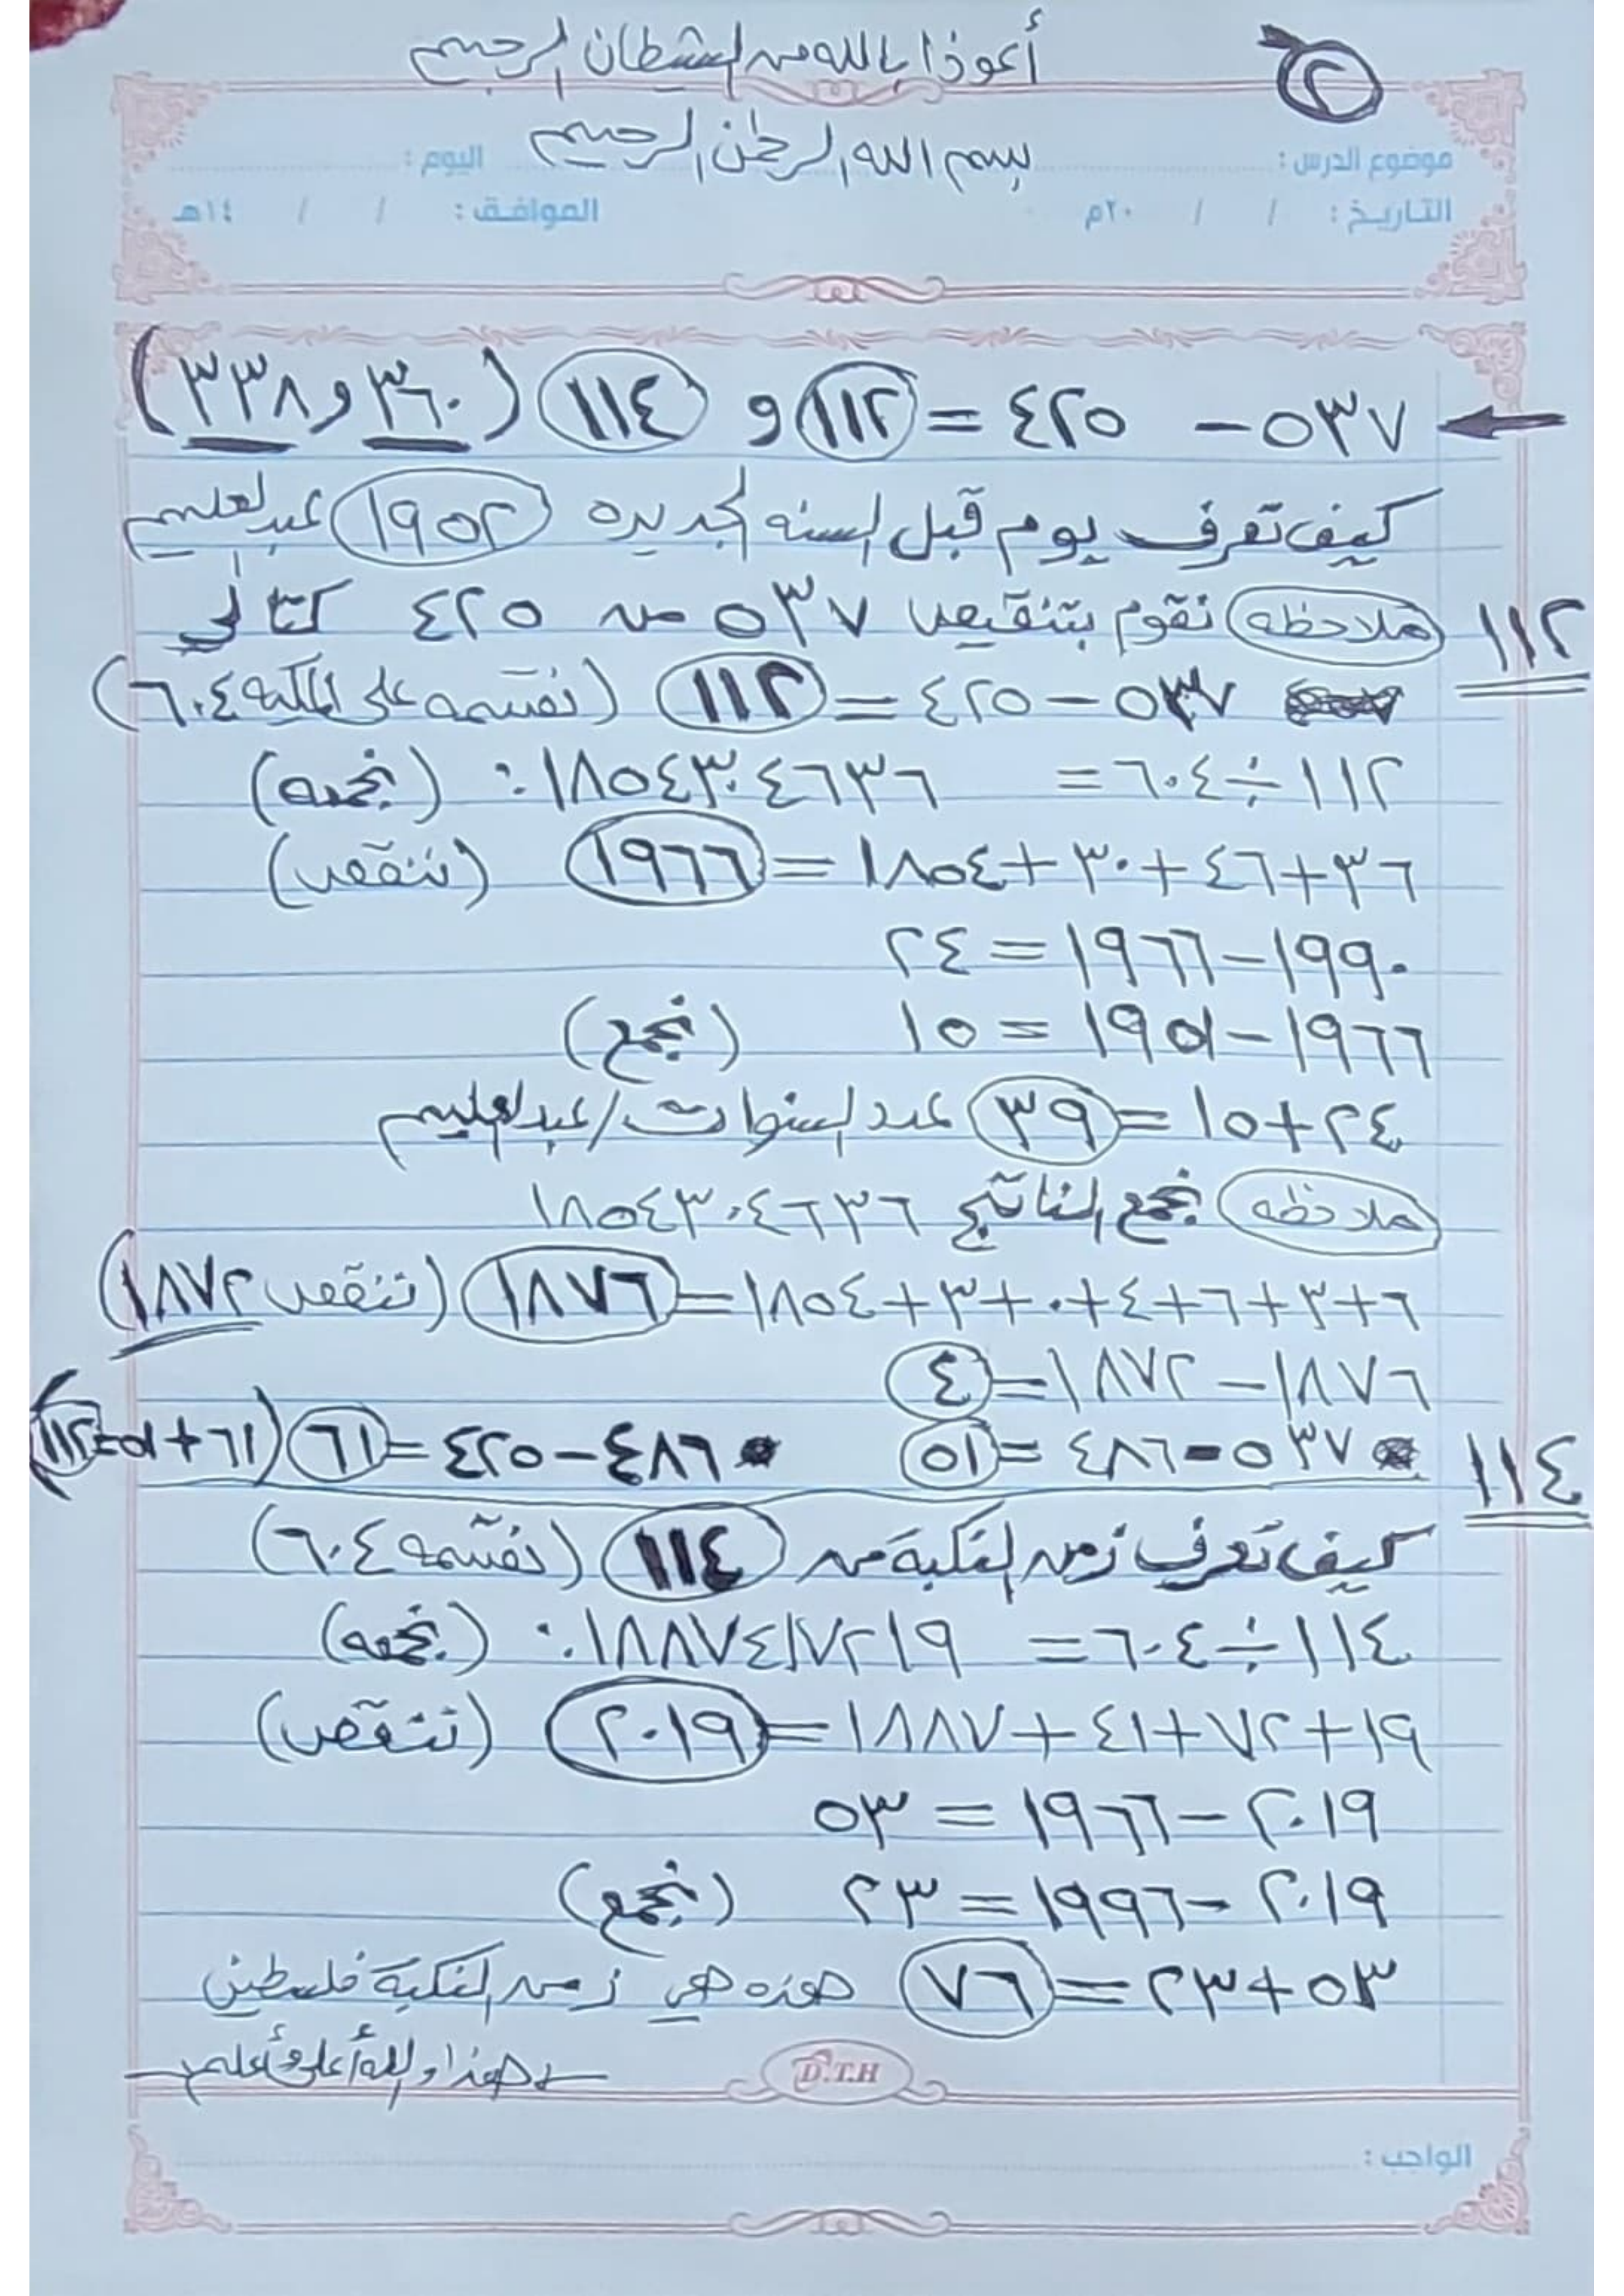 ٢
أعوذ بالله من الشيطان الرجيم
بسم الله الرحمن الرحيم
موضوع الدرس : اليوم :
التاريخ : / / ٢٠م الموافق : / / ١٤هـ
٥٣٧ - ٤٢٥ = ١١٢ و ١١٤ (٣٦٠ و ٣٣٨)
كيف تعرف يوم قبل السنه الجديده ١٩٥٢ عبدالعليم
١١٢ ملاحظه نقوم بتنقيص ٥٣٧ من ٤٢٥ كتالي
٥٣٧ - ٤٢٥ = ١١٢ (نقسمه على ٦٠٤)
١١٢ ÷ ٦٠٤ = ١٨٥٤٣٠٤٦٣٦. (نجمعه)
٣٦ + ٤٦ + ٣٠ + ١٨٥٤ = ١٩٦٦ (ننقص)
١٩٩٠ - ١٩٦٦ = ٢٤
١٩٦٦ - ١٩٥١ = ١٥ (نجمع)
٢٤ + ١٥ = ٣٩ عدد السنوات/عبدالعليم
ملاحظه نجمع الناتج ١٨٥٤٣٠٤٦٣٦
٦ + ٣ + ٦ + ٤ + ٠ + ٣ + ١٨٥٤ = ١٨٧٦ (ننقص ١٨٧٢)
١٨٧٦ - ١٨٧٢ = ٤
٥٣٧ - ٤٨٦ = ٥١ ٤٨٦ - ٤٢٥ = ٦١ (٦١ + ٥١ = ١١٢)
١١٤
كيف تعرف زمن النكبة من ١١٤ (نقسمه ٦٠٤)
١١٤ ÷ ٦٠٤ = ١٨٨٧٤١٧٢١٩. (نجمعه)
١٩ + ٧٢ + ٤١ + ١٨٨٧ = ٢٠١٩ (ننقص)
٢٠١٩ - ١٩٦٦ = ٥٣
٢٠١٩ - ١٩٩٦ = ٢٣ (نجمع)
٥٣ + ٢٣ = ٧٦ هذه هي زمن النكبة فلسطين
هذا والله أعلى وأعلم
D.T.H
الواجب :